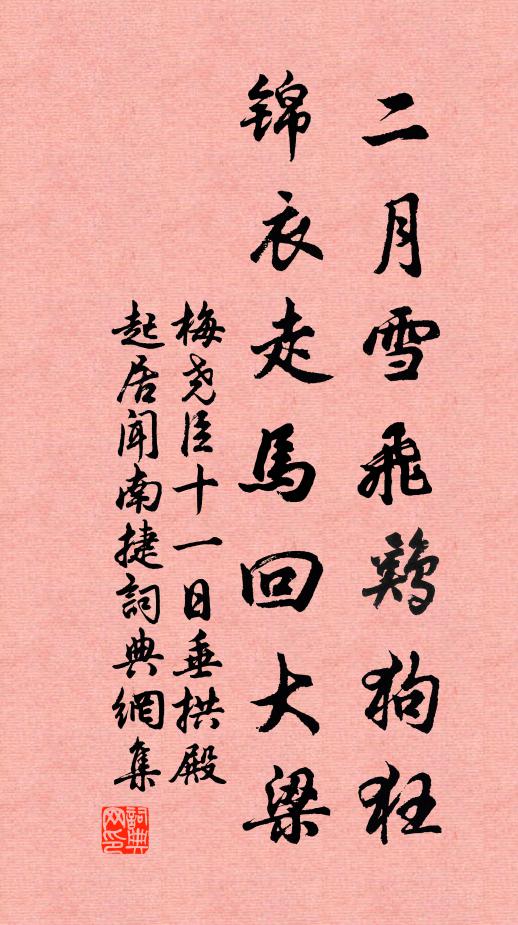 二月雪飛鷄狗狂
锦衣走馬回大梁
梅尧臣十一日垂拱殿
起居闻南捷詞典網集
詞典网印